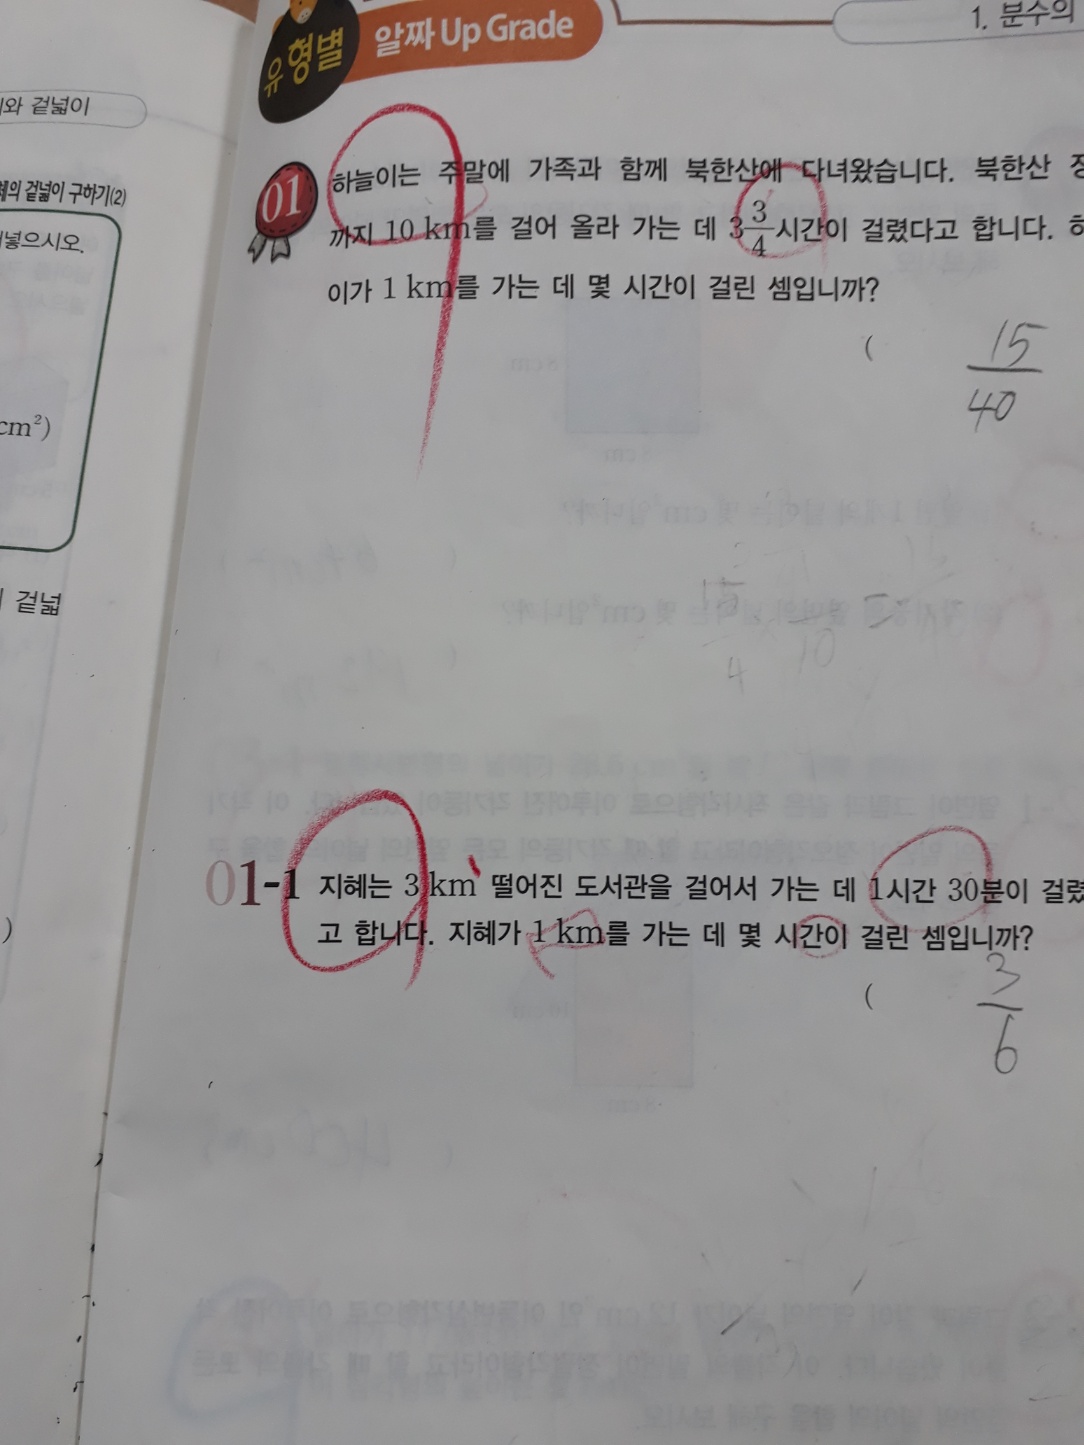 유형별
알짜 Up Grade
1. 분수의
와 겉넓이
의 겉넓이 구하기(2)
넣으시오.
cm²)
겉넓
)
01
하늘이는 주말에 가족과 함께 북한산에 다녀왔습니다. 북한산
까지 10 km를 걸어 올라 가는 데 3 3/4 시간이 걸렸다고 합니다.
이가 1 km를 가는 데 몇 시간이 걸린 셈입니까?
( 15/40
15
4
10
=
01-1 지혜는 3 km 떨어진 도서관을 걸어서 가는 데 1시간 30분이 걸렸
고 합니다. 지혜가 1 km를 가는 데 몇 시간이 걸린 셈입니까?
( 3/6